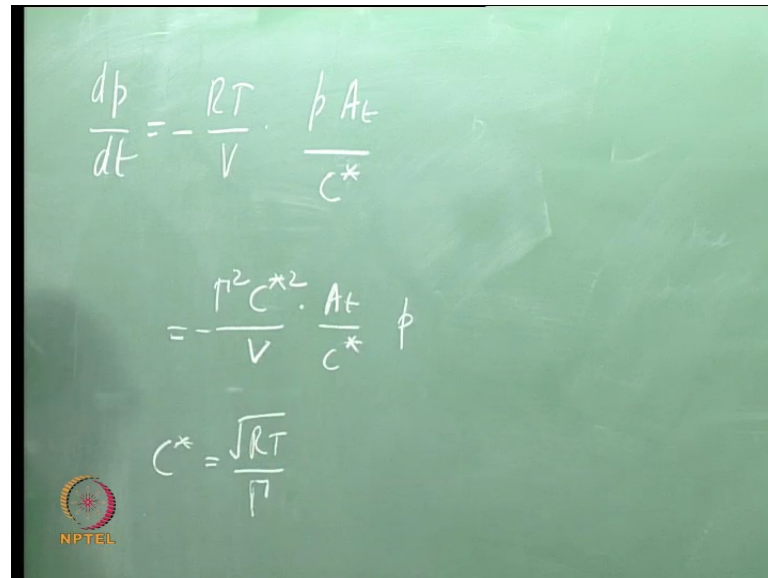 dp/dt = - RT/V · p At/C*
= - Γ² C*²/V · At/C* p
C* = √RT/Γ
NPTEL